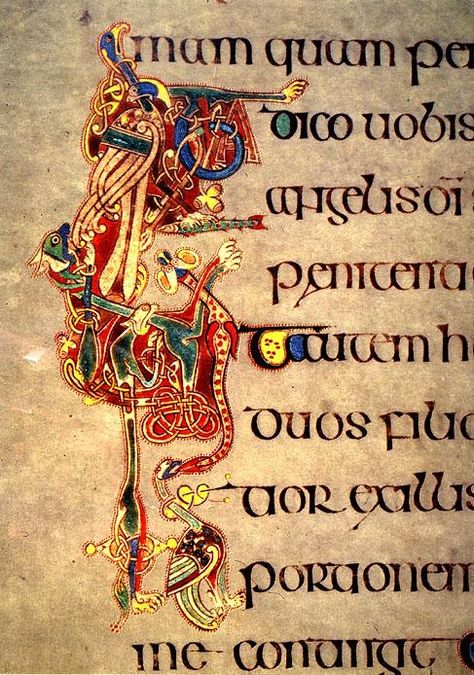 mam quam pe
dico uobis
angelis dī
penitentia
autem h
duos filio
tior exillis
portionem
me contingit